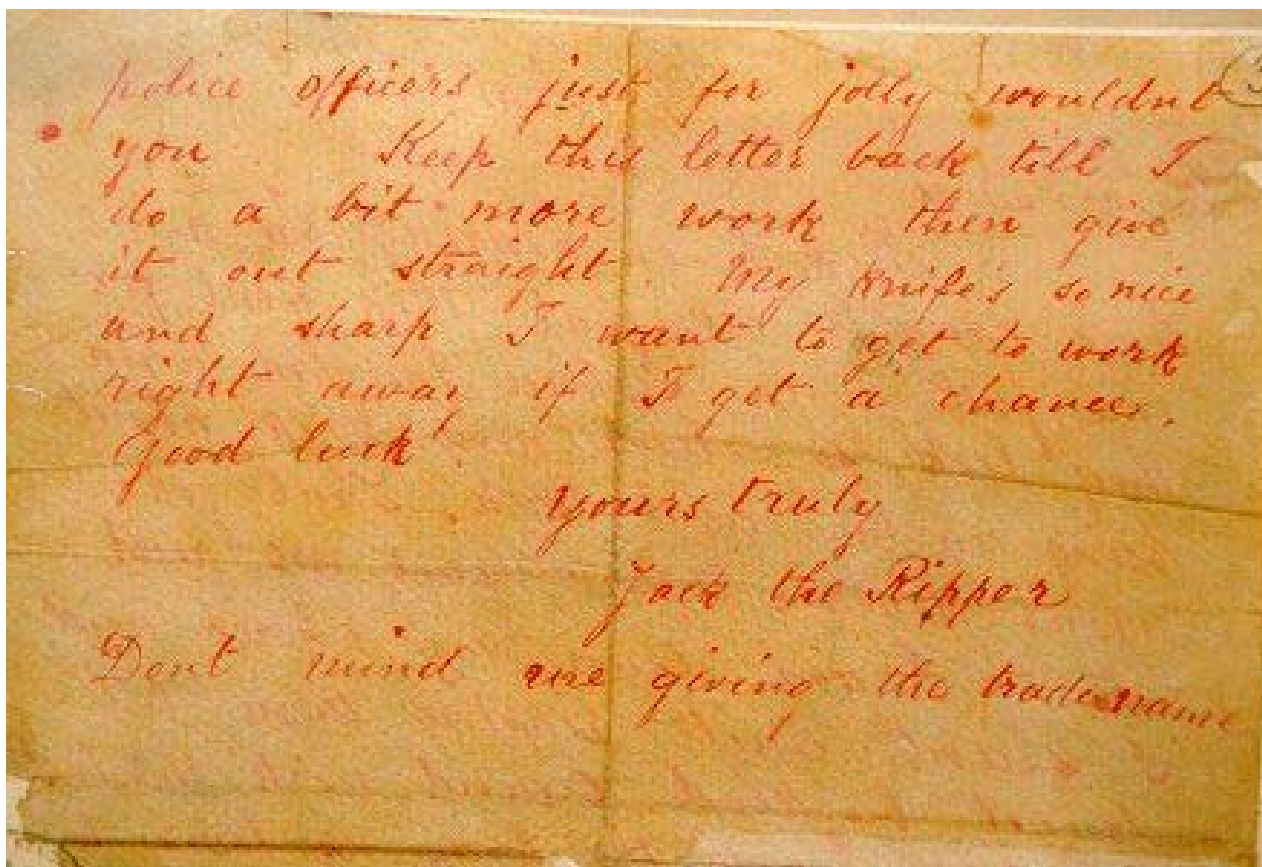 police officers just for jolly wouldnt
you. Keep this letter back till I
do a bit more work then give
it out straight. My knife's so nice
and sharp I want to get to work
right away if I get a chance.
Good luck.
yours truly
Jack the Ripper
Dont mind me giving the trade name